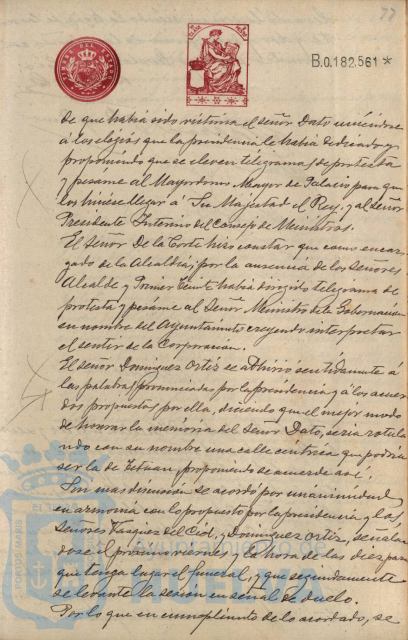 77
B.0.182.561 *
de que había sido victima el señor Dato uniéndose
á los elogios que la presidencia le había dedicado y
proponiendo que se eleven telegramas de protesta
y pésame al Mayordomo Mayor de Palacio para que
los hiciese llegar á Su Majestad el Rey, y al señor
Presidente Interino del Consejo de Ministros.
El señor De la Corte hizo constar que como encar-
gado de la Alcaldía, por la ausencia de los señores
Alcalde y Primer Teniente había dirigido telegrama de
protesta y pésame al Señor Ministro de la Gobernación
en nombre del Ayuntamiento creyendo interpretar
el sentir de la Corporación.
El señor Dominguez Ortiz se adhirió sentidamente á
las palabras pronunciadas por la presidencia y á los acuer-
dos propuestos por ella, diciendo que el mejor modo
de honrar la memoria del Señor Dato, sería rotulan
do con su nombre una calle céntrica que podría
ser la de Tetuan, proponiendo se acuerde así.
Sin mas discusión se acordó por unanimidad
en armonía con lo propuesto por la presidencia y los
señores Vazquez del Cid, y Dominguez Ortiz, señalán
dose el próximo viernes y la hora de las diez para
que tenga lugar el funeral, y que seguidamente
se levante la sesión en señal de duelo.
Por lo que en cumplimiento de lo acordado, se